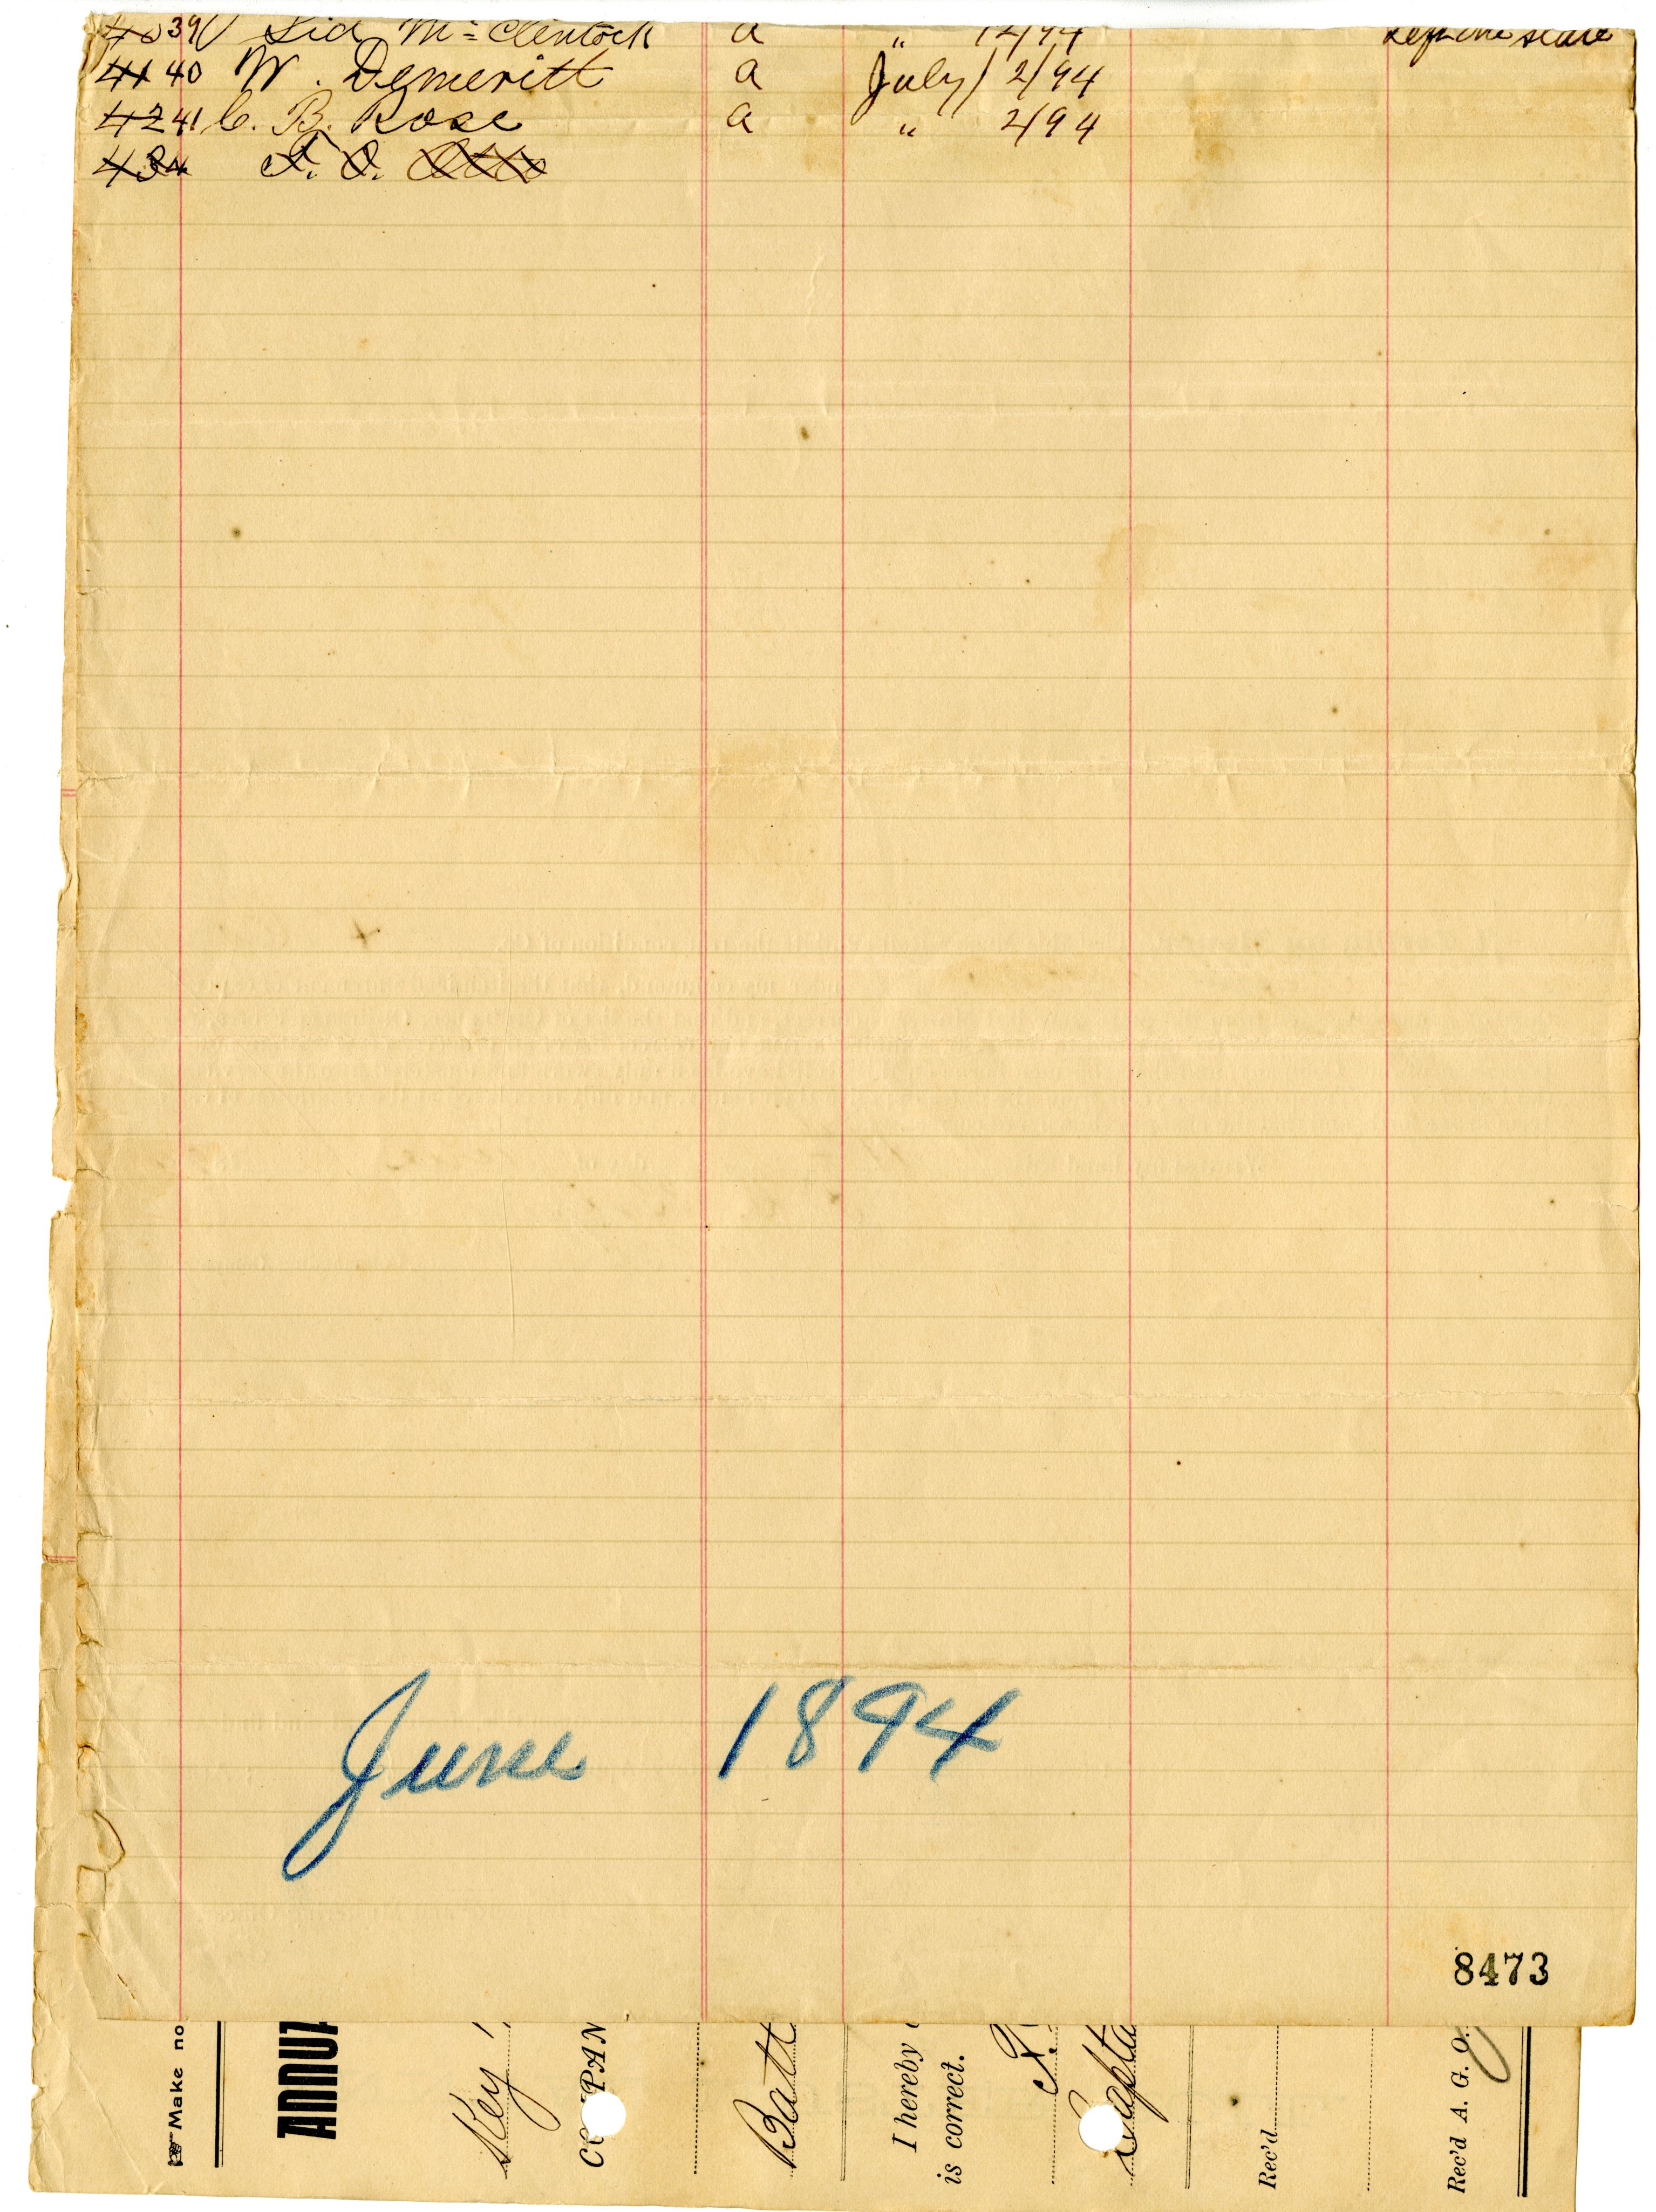 40 39 Sid McClintock a " 12/94 Left the state
41 40 W. Demeritt a July 2/94
42 41 C. B. Rose a " 2/94
43
June 1894
8473
Make no
ANNUA
Key
COMPAN
Batt
I hereby
is correct.
Capta
Rec'd
Rec'd A. G. O.